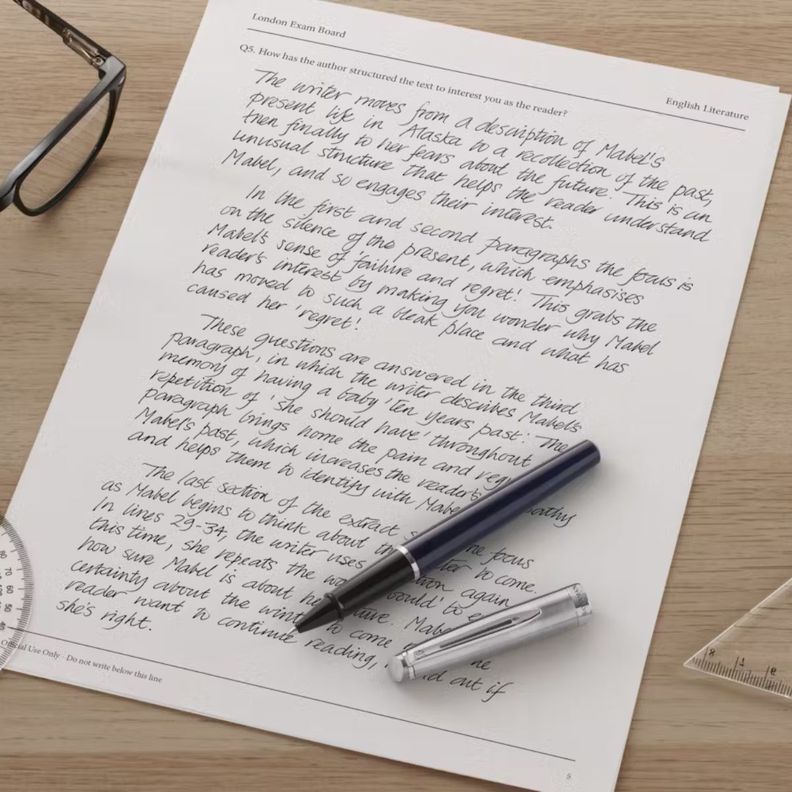 London Exam Board
English Literature
Q5. How has the author structured the text to interest you as the reader?
The writer moves from a description of Mabel's
present life in Alaska to a recollection of the past,
then finally to her fears about the future. This is an
unusual structure that helps the reader understand
Mabel, and so engages their interest.
In the first and second paragraphs the focus is
on the silence of the present, which emphasises
Mabel's sense of 'failure and regret'. This grabs the
reader's interest by making you wonder why Mabel
has moved to such a bleak place and what has
caused her 'regret'.
These questions are answered in the third
paragraph, in which the writer describes Mabel's
memory of having a baby 'ten years past'. The
repetition of 'she should have' throughout
paragraph brings home the pain and
Mabel's past, which increases the reader's
and helps them to identify with
The last section of the extract focus
as Mabel begins to think about to come.
In lines 29-34, the writer uses again
this time, she repeats the
how sure Mabel is about
certainty about the to come
reader want to continue reading, out if
she's right.
Official Use Only - Do not write below this line
5
80
70
60
50
40
8